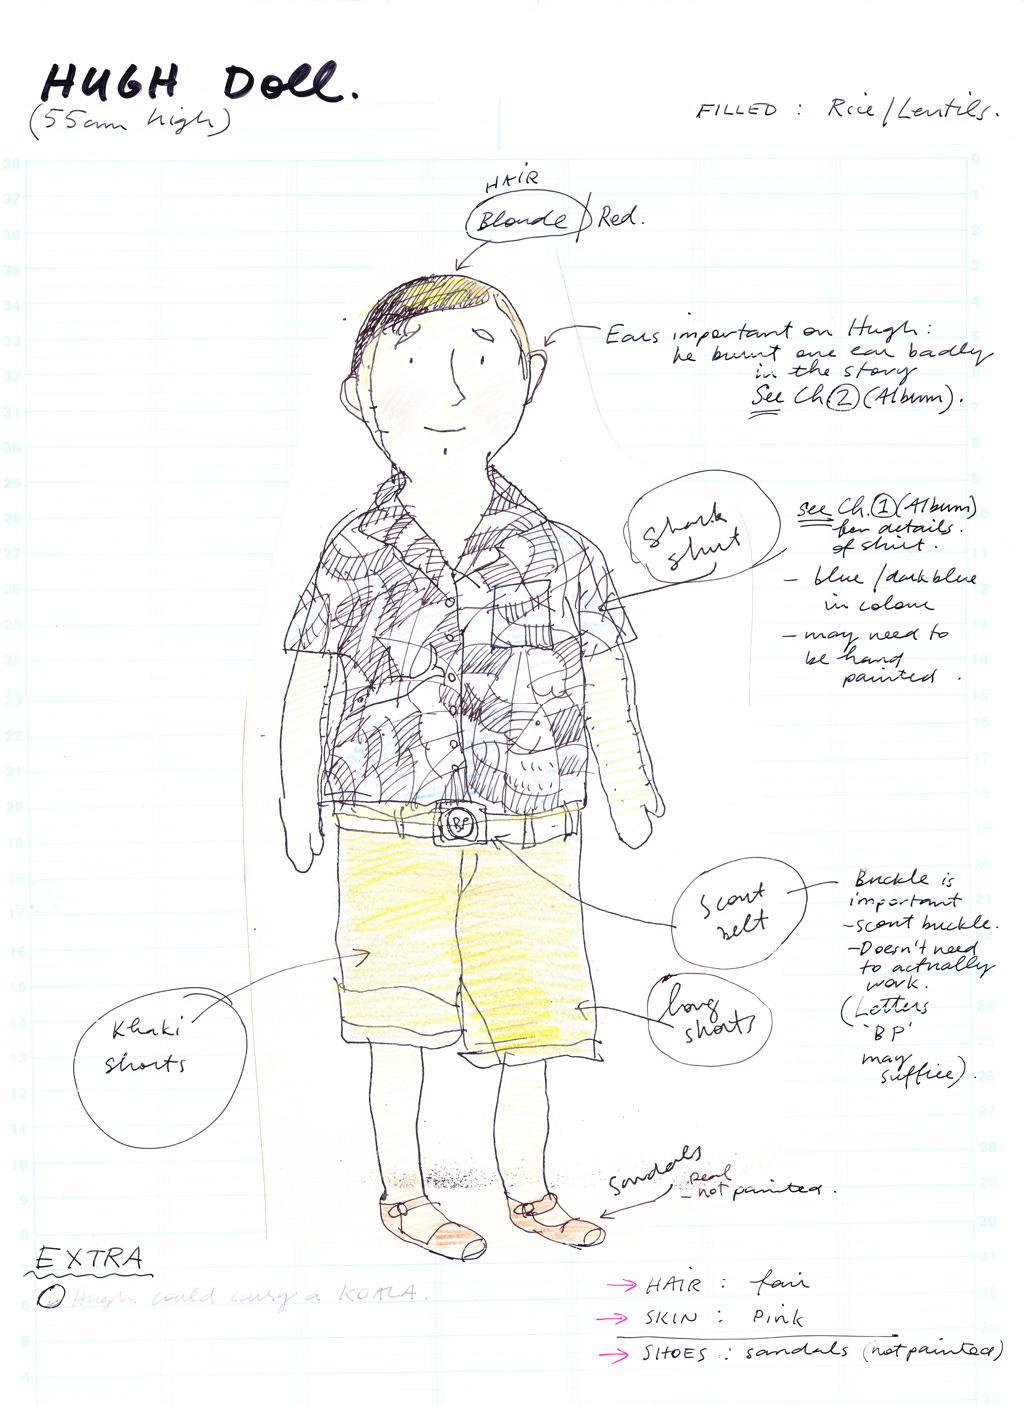 HUGH Doll.
(55cm high)
FILLED : Rice/Lentils.
HAIR
Blonde / Red.
Ears important on Hugh:
he burnt one ear badly
in the story
See Ch. 2 (Album).
Shark
shirt
see Ch. 1 (Album)
for details
of shirt.
- blue / dark blue
in colour
- may need to
be hand
painted.
BP
Scout
belt
Buckle is
important
- scout buckle.
- Doesn't need
to actually
work.
(Letters
'BP'
may
suffice).
long
shorts
Khaki
shorts
sandals
real
- not painted.
EXTRA
Hugh could carry a KOALA.
→ HAIR : fair
→ SKIN : Pink
→ SHOES : sandals (not painted)
38
37
36
35
34
33
32
31
30
29
28
27
26
25
24
23
22
21
20
19
18
17
16
15
14
13
12
11
10
9
8
6
5
4
0
1
2
3
4
5
6
7
8
9
11
12
13
14
15
16
17
18
19
20
21
24
26
27
28
29
30
31
32
33
35